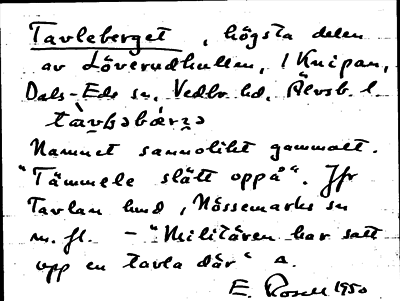 Tavleberget, högsta delen
av Löverudkullen, i Knipan,
Dals-Eds sn, Vedbo hd, Älvsb. l.
tàvḷəbærჳə
Namnet sannolikt gammalt.
"Tämmele slätt oppå". Jfr
Tavlan hmd, Nössemarks sn
m. fl. - "Militären har satt
upp en tavla där" a.
E. Rosell 1950